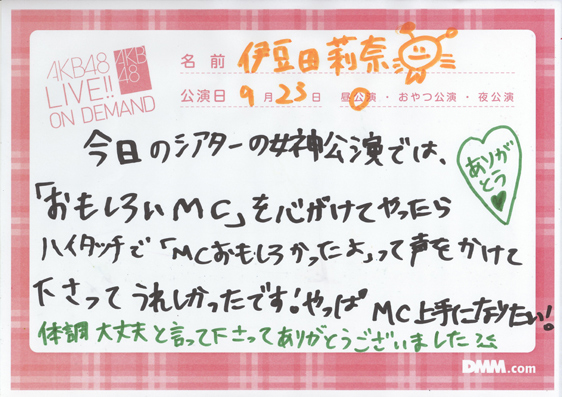 AKB48
LIVE!!
ON DEMAND
AKB
48
名前 伊豆田莉奈
公演日 9月23日 昼公演・おやつ公演・夜公演
今日のシアターの女神公演では、
ありが
とう
「おもしろいMC」を心がけてやったら
ハイタッチで「MCおもしろかったよ」って声をかけて
下さってうれしかったです!やっぱ MC上手になりたい!
体調大丈夫と言って下さってありがとうございました
DMM.com